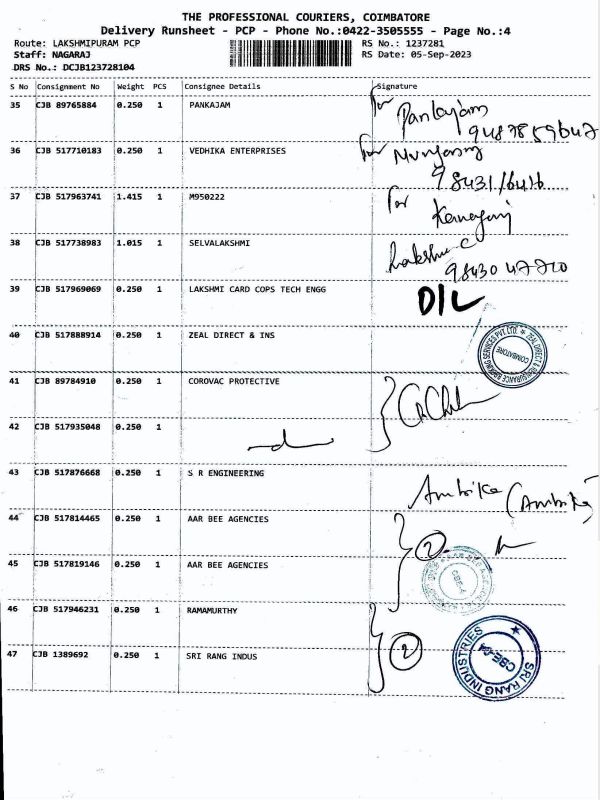 THE PROFESSIONAL COURIERS, COIMBATORE
Delivery Runsheet - PCP - Phone No.:0422-3505555 - Page No.:4
Route: LAKSHMIPURAM PCP RS No.: 1237281
Staff: NAGARAJ RS Date: 05-Sep-2023
DRS No.: DCJB123728104
S No Consignment No Weight PCS Consignee Details Signature
35 CJB 89765884 0.250 1 PANKAJAM for Pankajam
9487859647
36 CJB 517710183 0.250 1 VEDHIKA ENTERPRISES for
37 CJB 517963741 1.415 1 M950222 for
38 CJB 517738983 1.015 1 SELVALAKSHMI Lakshmi C
39 CJB 517969069 0.250 1 LAKSHMI CARD COPS TECH ENGG D/L
40 CJB 517888914 0.250 1 ZEAL DIRECT & INS ZEAL DIRECT & INSURANCE BROKING SERVICES PVT. LTD. COIMBATORE
41 CJB 89784910 0.250 1 COROVAC PROTECTIVE
42 CJB 517935048 0.250 1
43 CJB 517876668 0.250 1 S R ENGINEERING Ambika (Ambika)
44 CJB 517814465 0.250 1 AAR BEE AGENCIES 2
45 CJB 517819146 0.250 1 AAR BEE AGENCIES
46 CJB 517946231 0.250 1 RAMAMURTHY 2
47 CJB 1389692 0.250 1 SRI RANG INDUS SRI RANG INDUSTRIES CBE-04